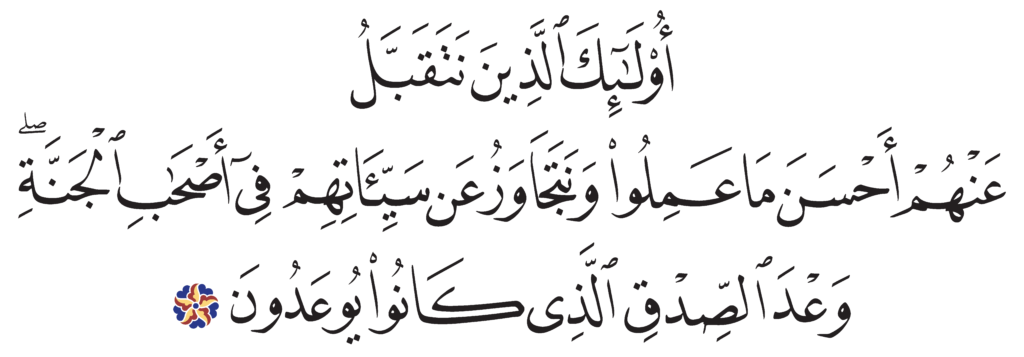 أُوْلَٰٓئِكَ ٱلَّذِينَ نَتَقَبَّلُ
عَنْهُمْ أَحْسَنَ مَا عَمِلُوا۟ وَنَتَجَاوَزُ عَن سَيِّـَٔاتِهِمْ فِىٓ أَصْحَٰبِ ٱلْجَنَّةِ ۖ
وَعْدَ ٱلصِّدْقِ ٱلَّذِى كَانُوا۟ يُوعَدُونَ